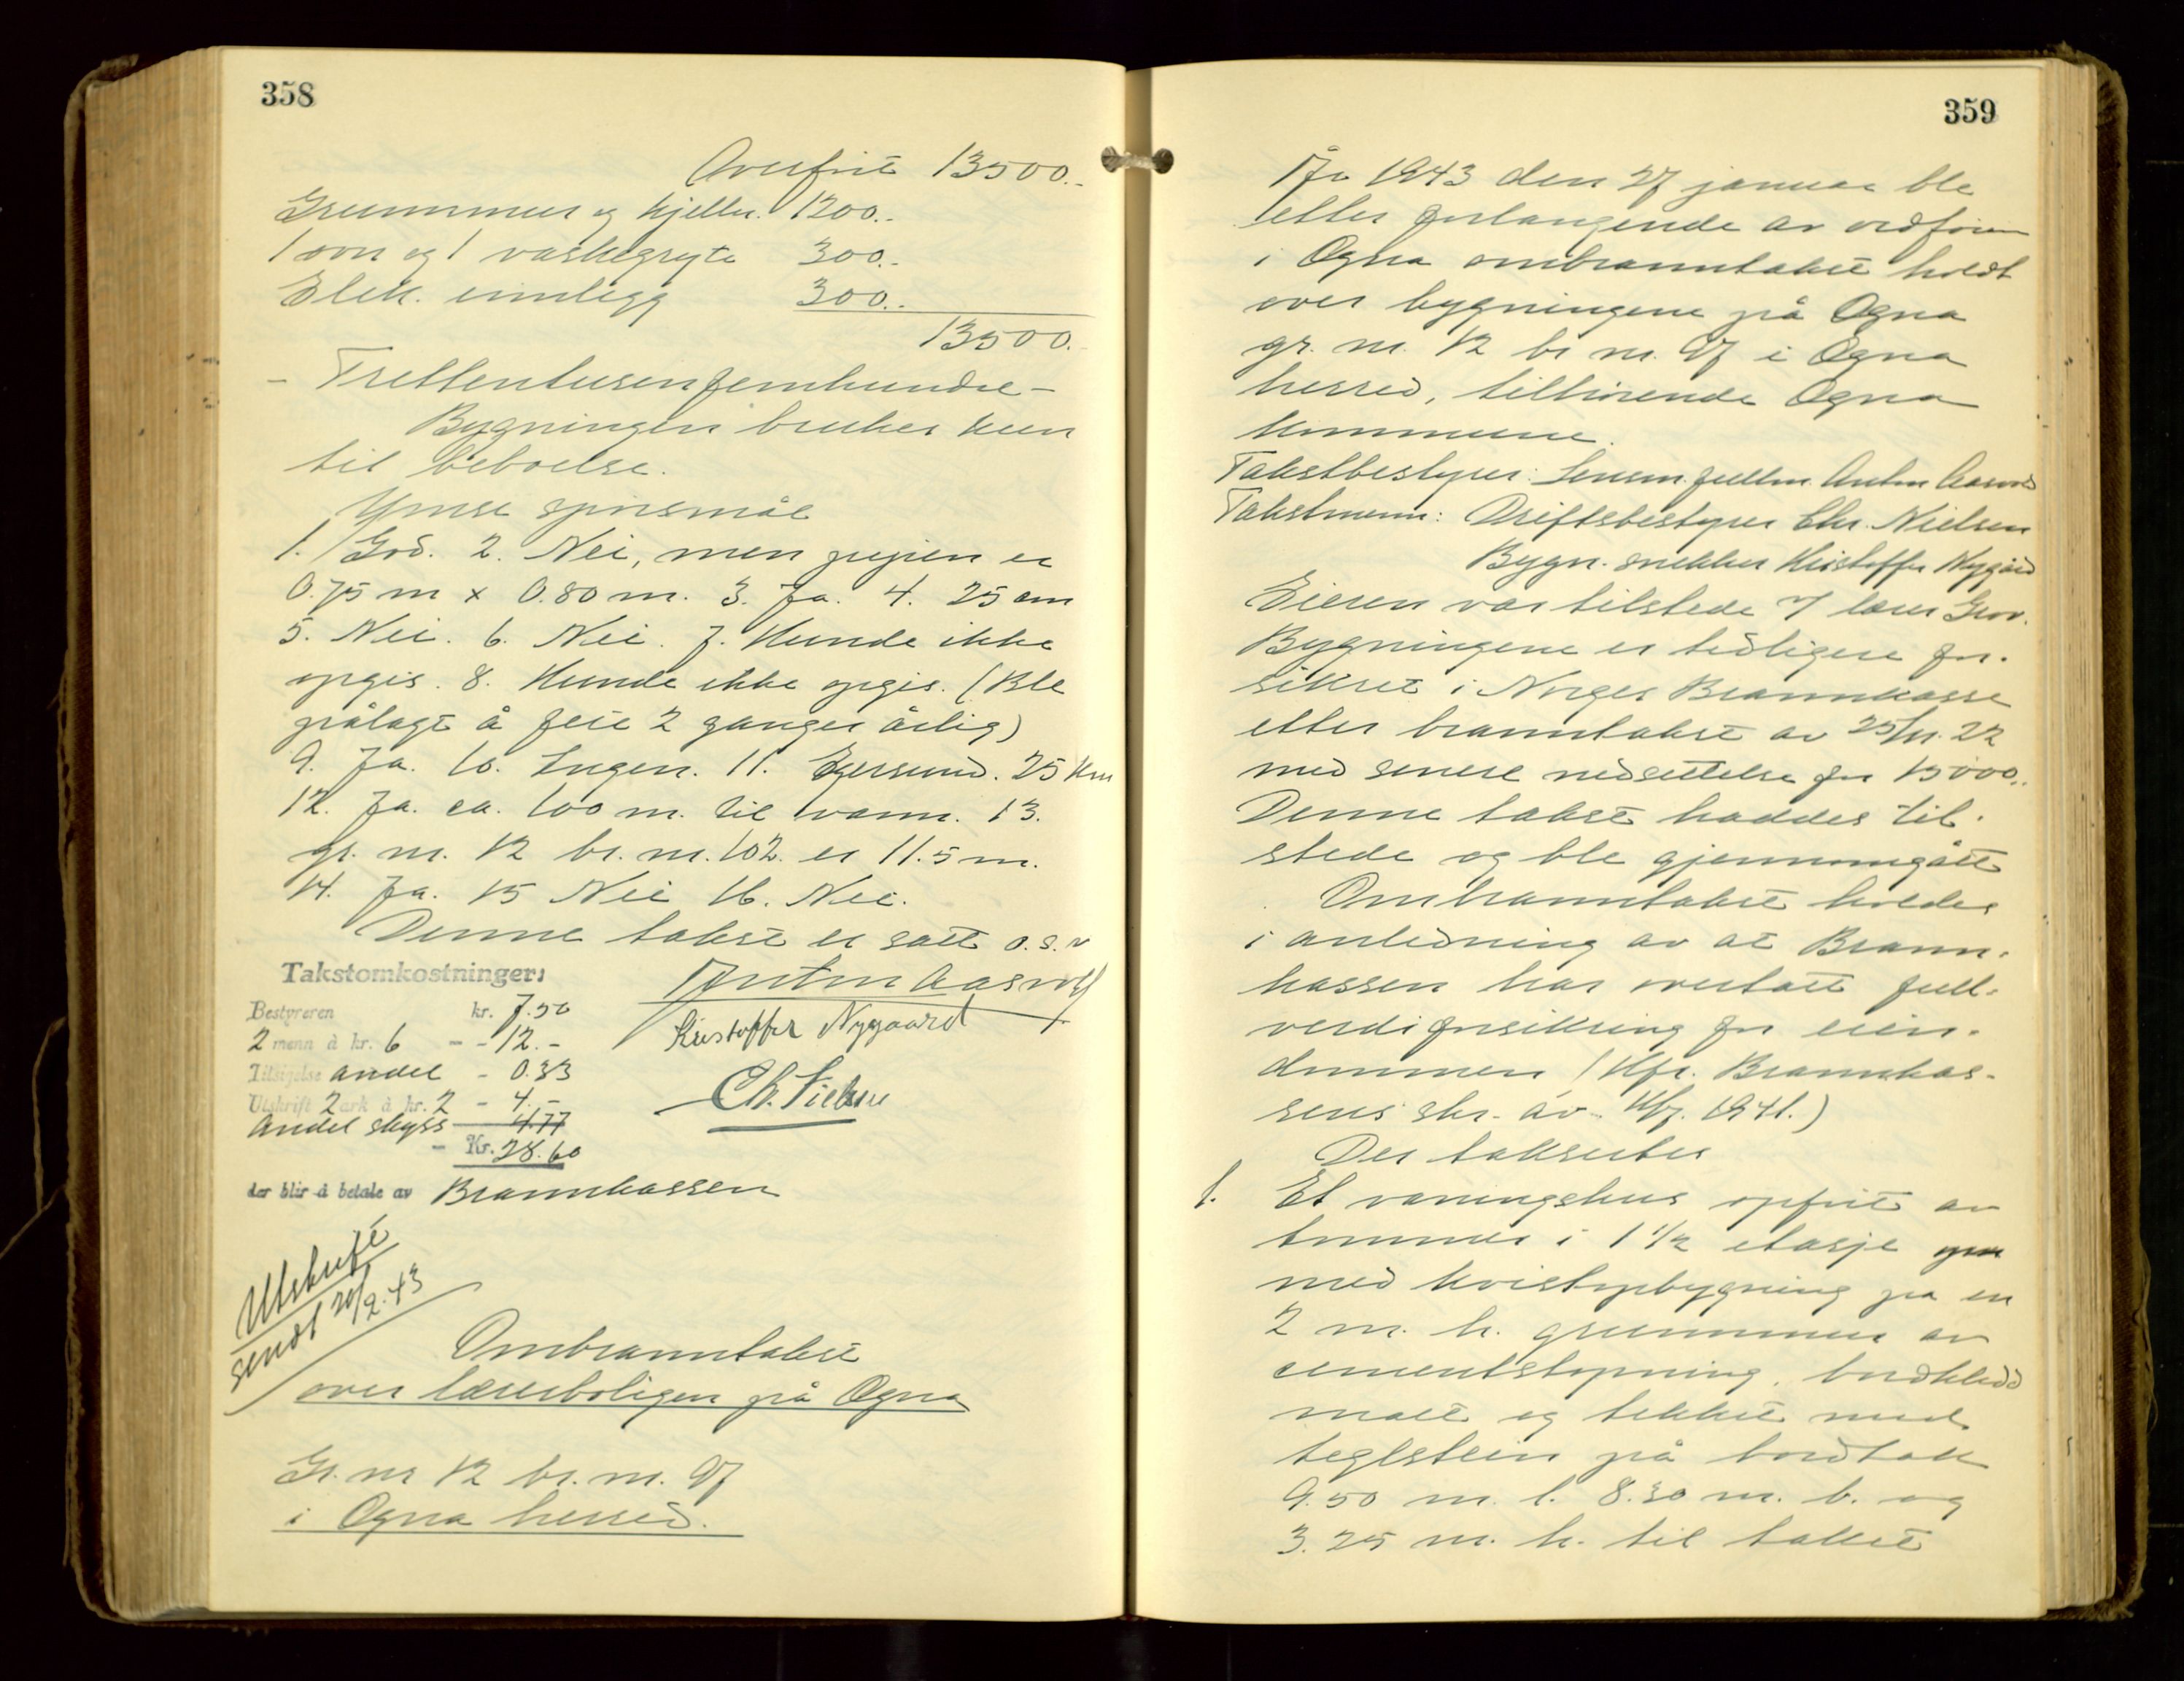 358
Overført 13500.-
Grunnmur og kjeller. 1200.-
1 ovn og 1 vaskegryte 300.-
Elek. innlegg 300.-
13500.
- Trettentusenfemhundre -
Bygningen brukes kun
til beboelse.
Ymse spørsmål
1. God. 2. Nei, men pipen er
0.75 m x 0.80 m. 3. Ja. 4. 25 cm
5. Nei. 6. Nei. 7. Kunde ikke
opgis. 8. Kunde ikke opgis. (Ble
pålagt å feie 2 ganger årlig)
9. Ja. 10. Ingen. 11. Egersund. 25 km
12. Ja. ca. 100 m. til vann. 13.
gr. nr. 12 br. nr. 102. er 11.5 m.
14. Ja. 15 Nei 16. Nei.
Denne takst er satt o.s.v
Takstomkostninger:
Anton Aasvold
Bestyreren kr. 7.50
Kristoffer Nygaard
2 menn à kr. 6 - - 12.-
Tilsigelse andel - 0.33
Ch. Nielsen
Utskrift 2 ark à kr. 2 - 4.-
Andel skyss 4.77
- Kr. 28.60
der blir å betale av Brannkassen
Utskrift
sendt 20/2.43
Ombranntakst
over lærerboligen på Ogna
Gr. nr 12 br. nr. 97
i Ogna herred.
359
År 1943 den 27 januar ble
etter forlangende av ordføren
i Ogna ombranntakst holdt
over bygningene på Ogna
gr. nr. 12 br nr. 97 i Ogna
herred, tilhørende Ogna
kommune.
Takstbestyrer: Lensm. fullm. Anton Aasvold
Takstmenn: Driftsbestyrer Chr. Nielsen
Bygn. snekker Kristoffer Nygård
Eieren var tilstede v/ lærer
Bygningene er tidligere for-
sikret i Norges Brannkasse
etter branntakst av 25/11. 22
med senere nedsettelse for 15000.-
Denne takst haddes til-
stede og ble gjennomgått
Ombranntakst holdes
i anledning av at Brann-
kassen har overtatt full-
verdiforsikring for eien-
dommen (Kfr. Brannkas-
sens skr. av 1941.)
Der taksertes
1. Et våningshus opført av
tømmer i 1 1/2 etasje
med kvistopbygning på en
2 m. h. grunnmur av
cementstøpning, bordkledd
malt og tekket med
teglstein på bordtak
9.50 m. l. 8.30 m. b. og
3.25 m. h. til taket